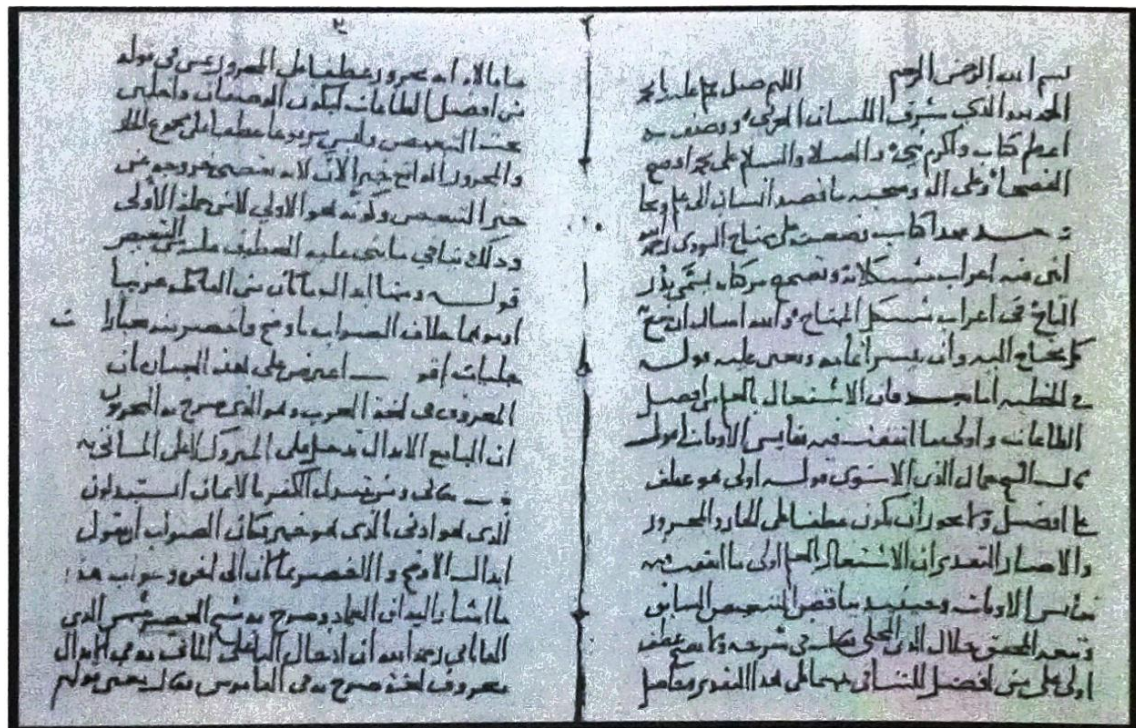 بسم الله الرحمن الرحيم اللهم صل على
الحمد لله الذي شرف اللسان العربي وصنف به
اعظم كتاب واكرم نبي والصلاة والسلام على محمد افصح
الفصحاء وعلى اله وصحبه ما قصد انسان الى
وبعد فهذا كتاب وضعته على منهاج النووي رحمه الله
ابين فيه اعراب مشكلاته
التاج في اعراب مشكل المنهاج والله اسال ان
كل محتاج اليه وان ييسر اتمامه ويعين عليه قوله
في الخطبة اما بعد فان الاشتغال بالعلم من افضل
الطاعات واولى ما انفقت فيه نفايس الاوقات اقول
قال الشيخ جمال الدين الاسنوي قوله اولى هو عطف
على افضل ولا يجوز ان يكون عطفا على الجار والمجرور
والا صار التقدير ان الاشتغال بالعلم اولى ما انفقت فيه
نفايس الاوقات وحينئذ يناقض التبعيض السابق
وتبعه المحقق جلال الدين المحلي فقال في شرحه ولا يصح عطف
اولى على من افضل للتنافي بينهما على هذا التقدير وحاصل
ما قالاه انه مجرور عطفا على المجرور بمن في قوله
من افضل الطاعات ليكون الوصفان داخلين
تحت التبعيض وليس مرفوعا عطفا على مجموع الجار
والمجرور الواقع خبر الان لانه يقتضي خروجه عن
حيز التبعيض وكونه هو الاولى لا من جملة الاولى
وذلك ينافي ما بني عليه المعطوف عليه من التبعيض
قوله ومنها ابدال ما كان من الفاظه غريبا
او موهما خلاف الصواب باوضح واخصر منه بعبارات
جليات اقول اعترض على هذه العبارة ان
المعروف في لغة العرب وهو الذي صرح به النحويون
ان الباء مع الابدال تدخل على المتروك لا على الماتي به
قال تعالى ومن يتبدل الكفر بالايمان اتستبدلون
الذي هو ادنى بالذي هو خير فكان الصواب ان يقول
ابدال الاوضح والاخصر بما كان الى اخره وجواب هذا
ما اشار اليه ابن العماد وصرح به شيخ العصر شمس الدين
القاياتي رحمه الله ان ادخال الباء على الماتي به في الابدال
معروف لغة صرح به في القاموس فقال يعني قولهم